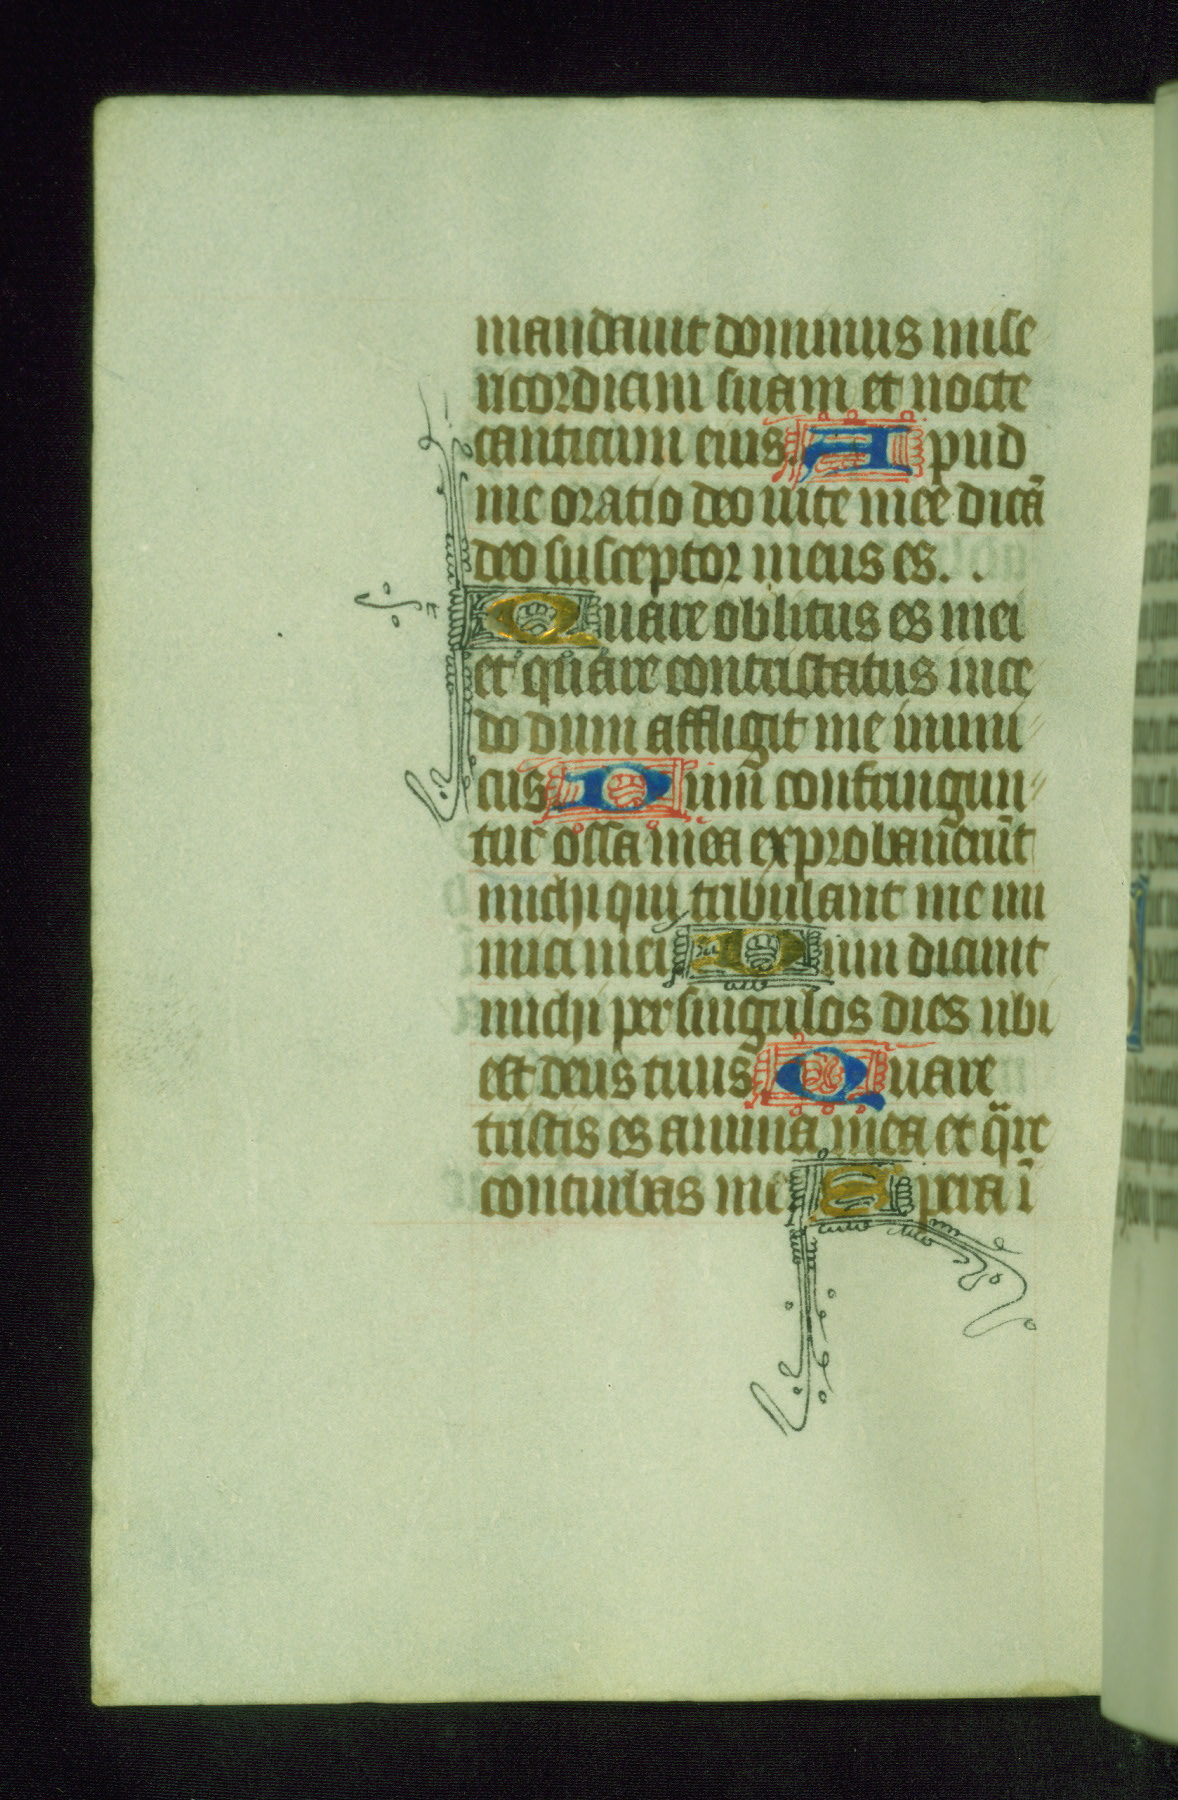 mandauit dominus mise
ricordiam suam et nocte
canticum eius. Apud
me oratio deo uite mee dicā
deo susceptor meus es.
Quare oblitus es mei
et quare contristatus ince
do dum affligit me inimi
cus Dum confringun
tur ossa mea exprobauerūt
michi qui tribulant me ini
mici mei Dum dicunt
michi per singulos dies ubi
est deus tuus Quare
tristis es anima mea et qͣre
conturbas me Spera ī